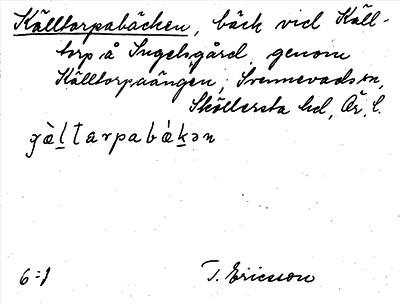 Källtorpabäcken, bäck vid Käll-
torp å Ingelsgård, genom
Källtorpaängen, Svennevads sn,
Sköllersta hd, Ör. l.
6:1 T. Ericsson